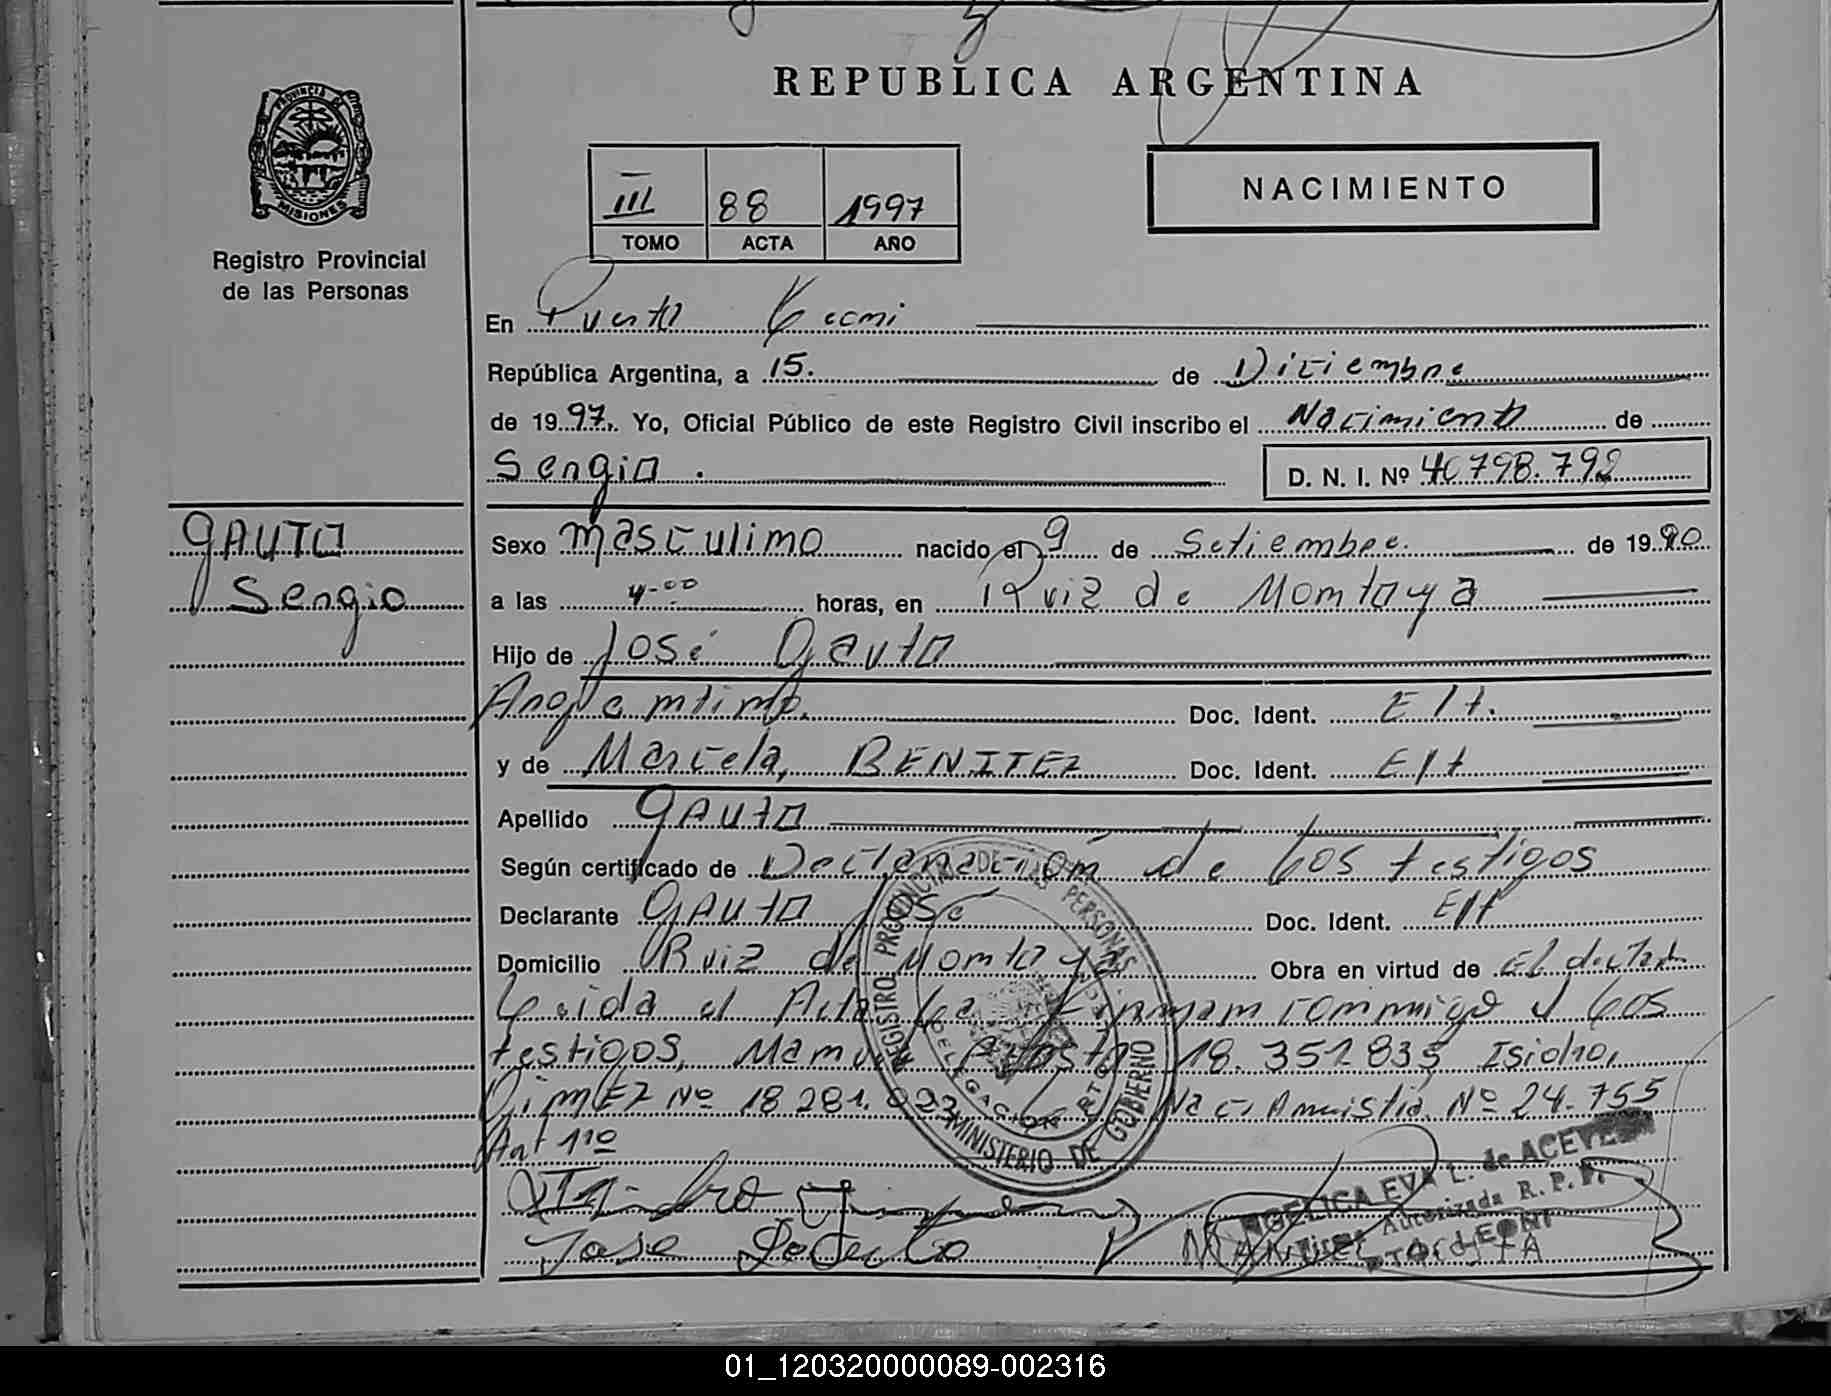 REPUBLICA ARGENTINA
PROVINCIA DE
MISIONES
Registro Provincial
de las Personas
III 88 1997
TOMO ACTA AÑO
NACIMIENTO
En Puerto Leoni
República Argentina, a 15. de Diciembre
de 1997. Yo, Oficial Público de este Registro Civil inscribo el Nacimiento de
Sergio. D. N. I. Nº 40798.792
GAUTO
Sergio
Sexo masculino nacido el 9 de Setiembre. de 1990
a las 4-00 horas, en Ruiz de Montoya
Hijo de José Gauto
Argentino. Doc. Ident. E/t.
y de Marcela, BENITEZ Doc. Ident. E/t
Apellido GAUTO
Según certificado de Declaración de los testigos
Declarante GAUTO José Doc. Ident. E/t
Domicilio Ruiz de Montoya Obra en virtud de El declarante
Leida el Acta la Firman conmigo y los
testigos, Manuel Acosta 18.351835 Isidro,
GimEZ Nº 18 281.023 Ley Amnistia Nº 24.755
Art 1ro
REGISTRO PROVINCIAL DE LAS PERSONAS
MINISTERIO DE GOBIERNO
DELEGACION
Isidro
Jose
MANUEL ACOSTA
ANGELICA EVA L. de ACEVEDO
Firma Autorizada R. P. P.
PTO. LEONI
01_120320000089-002316